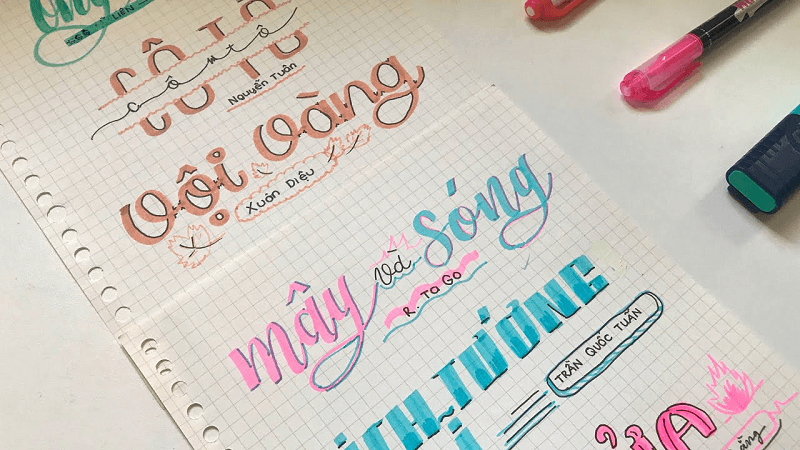 LIÊN
CÔ TÔ
cô tô
Nguyễn Tuân
Vội vàng
Xuân Diệu
mây và sóng
R. Ta Go
ỊCH TƯỚNG
TRẦN QUỐC TUẤN
ỬA
ằng